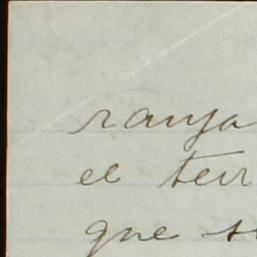 ranja
el terr
que s